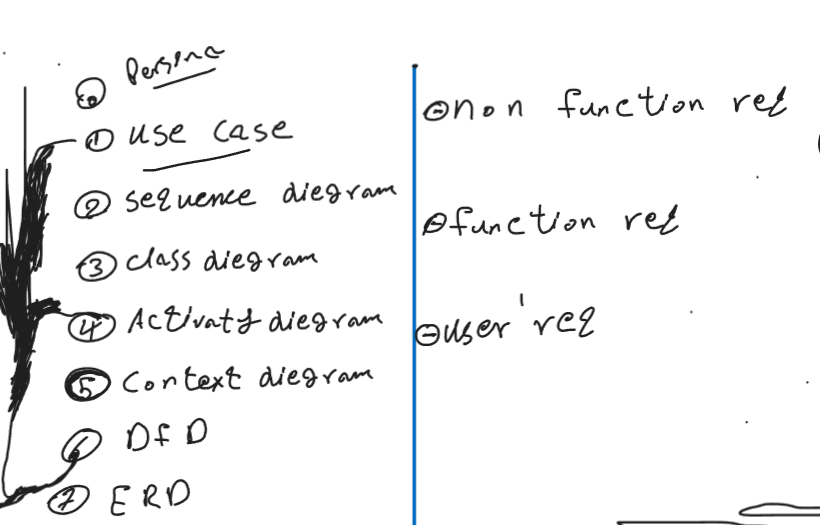 ⓪ Persina
① use case
② sequence diegram
③ class diegram
④ Activaty diegram
⑤ Context diegram
⑥ DfD
⑦ ERD
⊖ non function req
⊖ function req
⊖ user' req